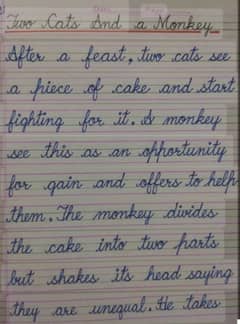 Two Cats And a Monkey
After a feast, two cats see
a piece of cake and start
fighting for it. A monkey
see this as an opportunity
for gain and offers to help
them. The monkey divides
the cake into two parts
but shakes its head saying
they are unequal. He takes